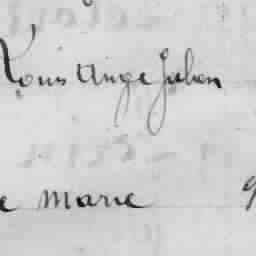 Louis Ange Julien
e Marie 9